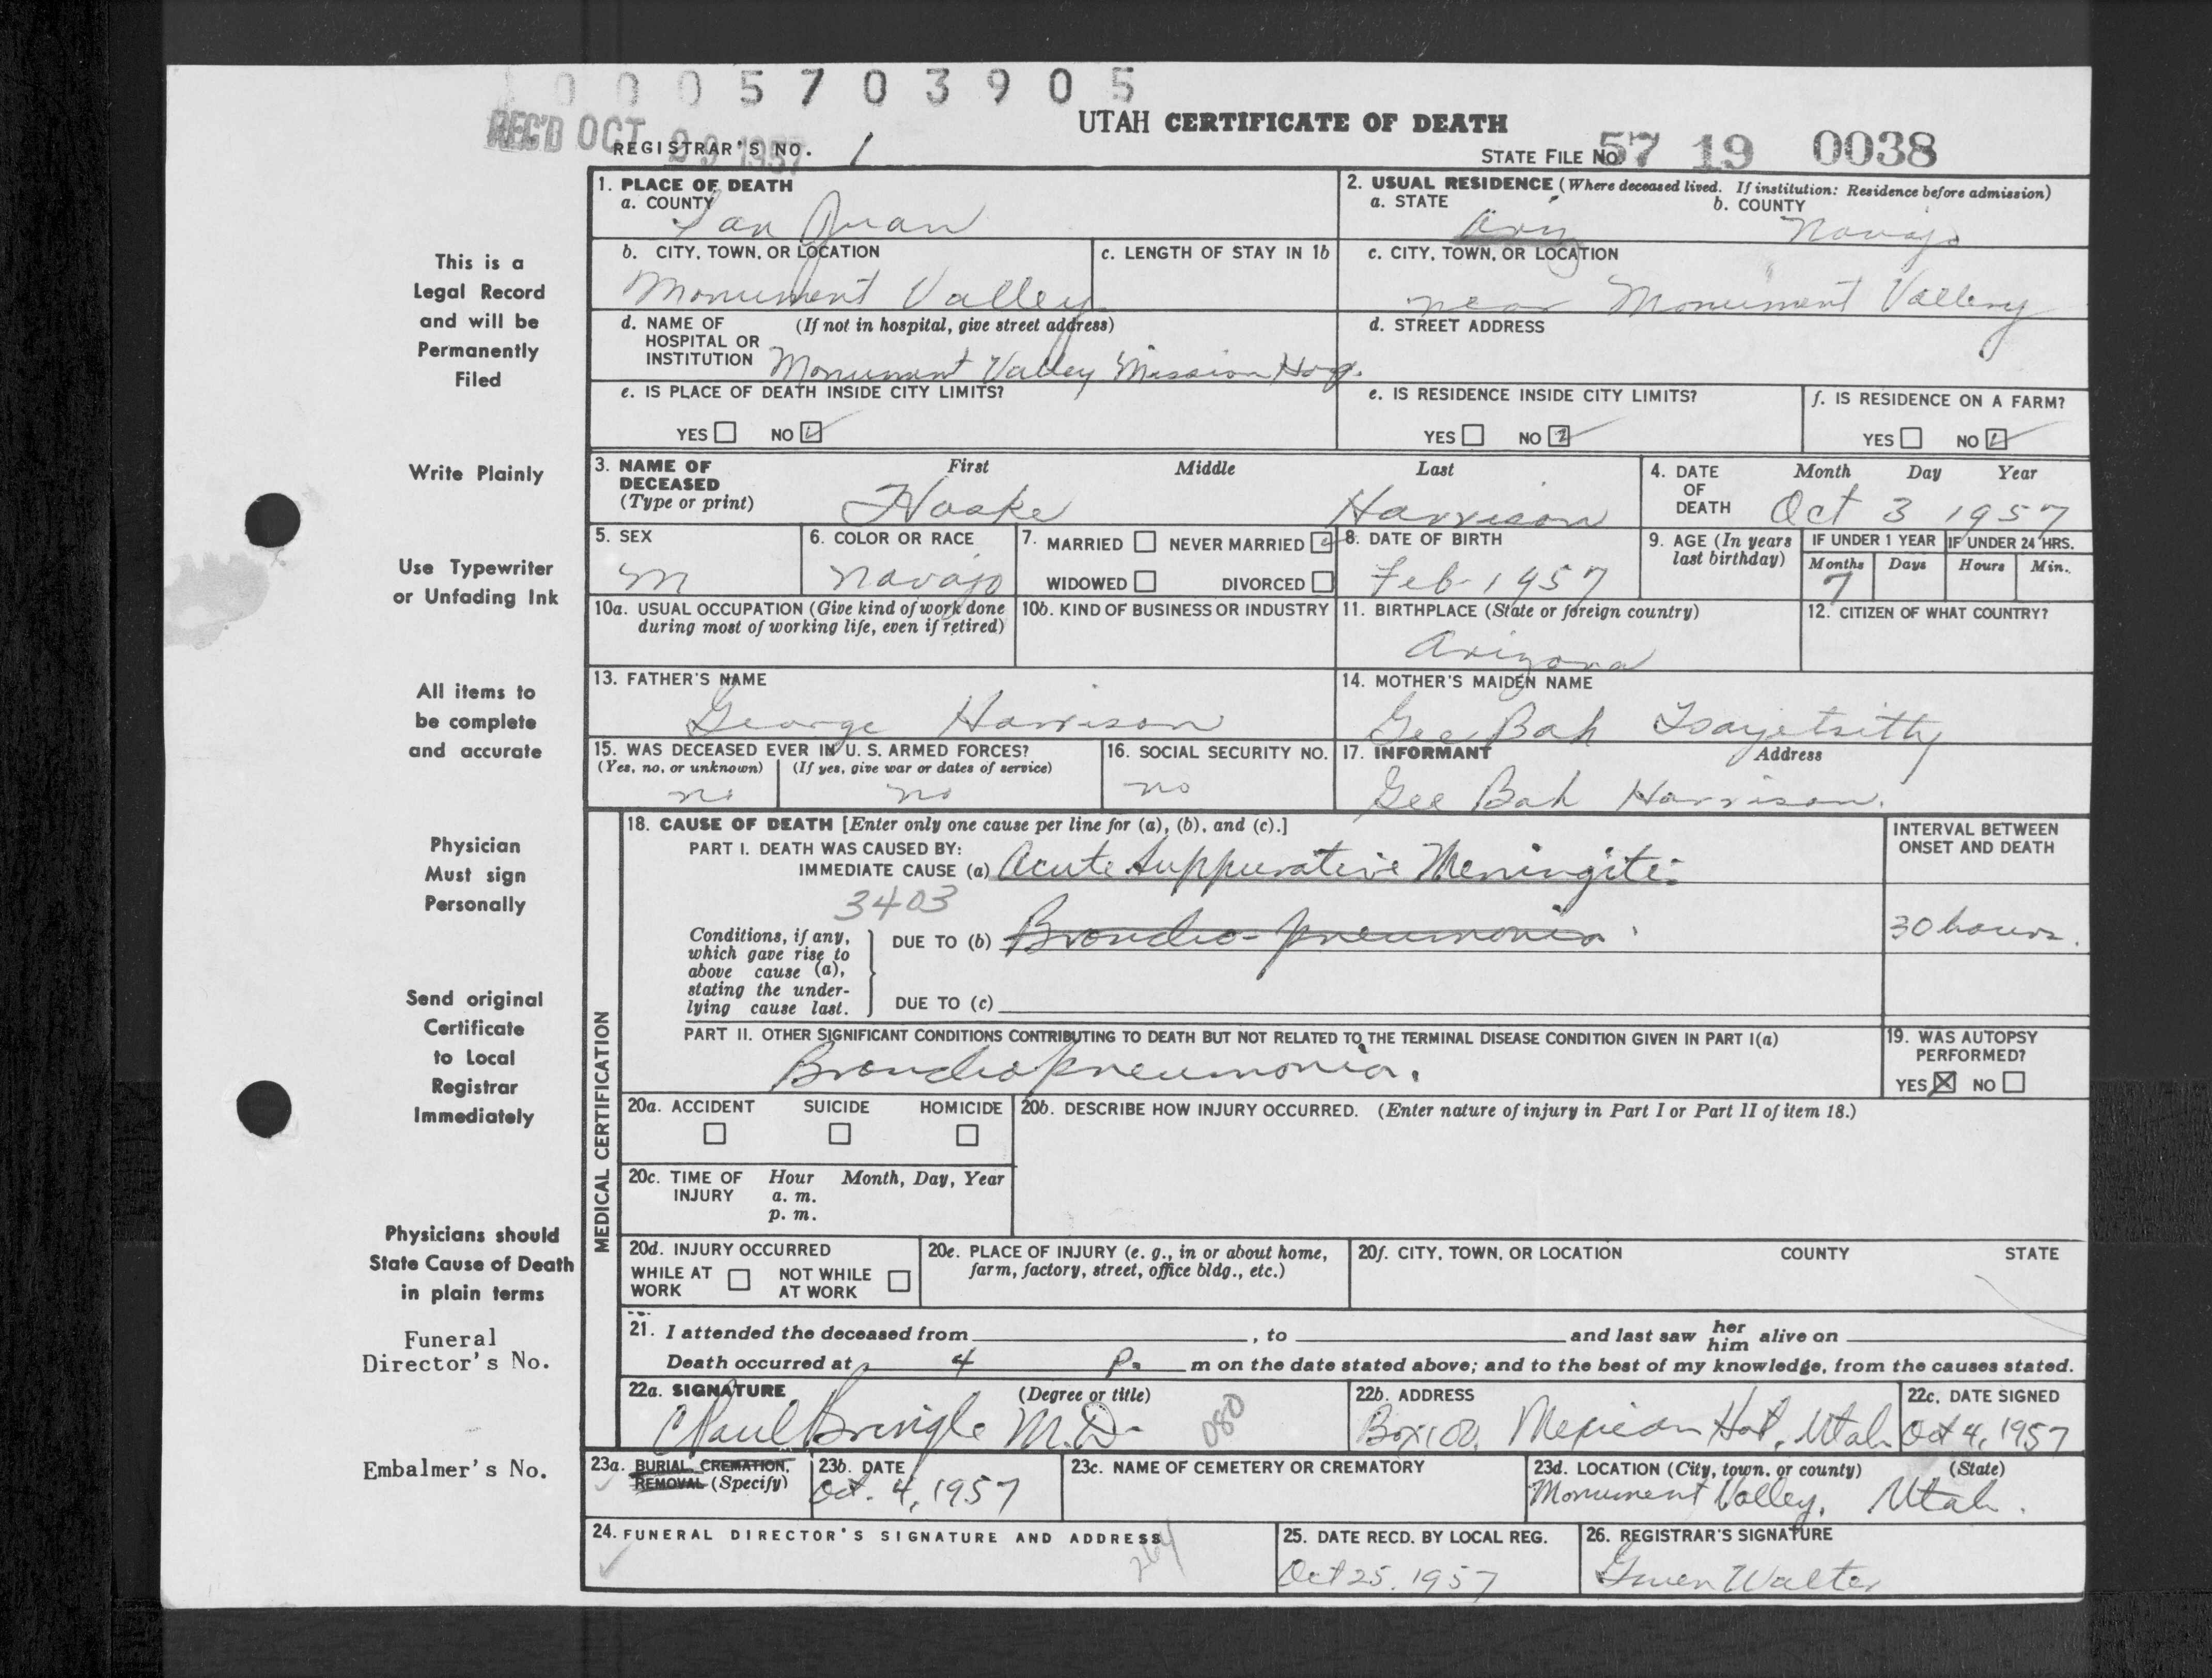 0 0 0 5 7 0 3 9 0 5
REC'D OCT 29 1957
UTAH CERTIFICATE OF DEATH
REGISTRAR'S NO. 1
STATE FILE NO. 57 19 0038
This is a
Legal Record
and will be
Permanently
Filed
Write Plainly
Use Typewriter
or Unfading Ink
All items to
be complete
and accurate
Physician
Must sign
Personally
Send original
Certificate
to Local
Registrar
Immediately
Physicians should
State Cause of Death
in plain terms
Funeral
Director's No.
Embalmer's No.
1. PLACE OF DEATH
a. COUNTY
San Juan
2. USUAL RESIDENCE (Where deceased lived. If institution: Residence before admission)
a. STATE
b. COUNTY
Ariz
Navajo
b. CITY, TOWN, OR LOCATION
Monument Valley
c. LENGTH OF STAY IN 1b
c. CITY, TOWN, OR LOCATION
near Monument Valley
d. NAME OF (If not in hospital, give street address)
HOSPITAL OR
INSTITUTION Monument Valley Mission Hosp.
d. STREET ADDRESS
e. IS PLACE OF DEATH INSIDE CITY LIMITS?
YES NO
e. IS RESIDENCE INSIDE CITY LIMITS?
YES NO
f. IS RESIDENCE ON A FARM?
YES NO
3. NAME OF First Middle Last
DECEASED
(Type or print)
Hoske Harrison
4. DATE Month Day Year
OF
DEATH Oct 3 1957
5. SEX
M
6. COLOR OR RACE
Navajo
7. MARRIED NEVER MARRIED
WIDOWED DIVORCED
8. DATE OF BIRTH
Feb - 1957
9. AGE (In years
last birthday)
IF UNDER 1 YEAR
Months Days
7
IF UNDER 24 HRS.
Hours Min.
10a. USUAL OCCUPATION (Give kind of work done
during most of working life, even if retired)
10b. KIND OF BUSINESS OR INDUSTRY
11. BIRTHPLACE (State or foreign country)
Arizona
12. CITIZEN OF WHAT COUNTRY?
13. FATHER'S NAME
George Harrison
14. MOTHER'S MAIDEN NAME
Gee Bah Tsayetsitty
15. WAS DECEASED EVER IN U. S. ARMED FORCES?
(Yes, no, or unknown) (If yes, give war or dates of service)
no no
16. SOCIAL SECURITY NO.
no
17. INFORMANT Address
Gee Bah Harrison.
MEDICAL CERTIFICATION
18. CAUSE OF DEATH [Enter only one cause per line for (a), (b), and (c).]
PART I. DEATH WAS CAUSED BY:
IMMEDIATE CAUSE (a) Acute Suppurative Meningitis
3403
Conditions, if any,
which gave rise to
above cause (a),
stating the under-
lying cause last.
DUE TO (b) Broncho-pneumonia
DUE TO (c)
INTERVAL BETWEEN
ONSET AND DEATH
30 hours.
PART II. OTHER SIGNIFICANT CONDITIONS CONTRIBUTING TO DEATH BUT NOT RELATED TO THE TERMINAL DISEASE CONDITION GIVEN IN PART I(a)
Bronchopneumonia.
19. WAS AUTOPSY
PERFORMED?
YES NO
20a. ACCIDENT SUICIDE HOMICIDE
20b. DESCRIBE HOW INJURY OCCURRED. (Enter nature of injury in Part I or Part II of item 18.)
20c. TIME OF Hour Month, Day, Year
INJURY a. m.
p. m.
20d. INJURY OCCURRED
WHILE AT NOT WHILE
WORK AT WORK
20e. PLACE OF INJURY (e. g., in or about home,
farm, factory, street, office bldg., etc.)
20f. CITY, TOWN, OR LOCATION COUNTY STATE
21. I attended the deceased from , to and last saw her him alive on
Death occurred at 4 P. m on the date stated above; and to the best of my knowledge, from the causes stated.
22a. SIGNATURE (Degree or title)
Paul Pringle M.D.
080
22b. ADDRESS
Box 100, Mexican Hat, Utah
22c. DATE SIGNED
Oct 4, 1957
23a. BURIAL, CREMATION,
REMOVAL (Specify)
23b. DATE
Oct. 4, 1957
23c. NAME OF CEMETERY OR CREMATORY
23d. LOCATION (City, town, or county) (State)
Monument Valley, Utah.
24. FUNERAL DIRECTOR'S SIGNATURE AND ADDRESS
264
25. DATE RECD. BY LOCAL REG.
Oct 25, 1957
26. REGISTRAR'S SIGNATURE
Gwen Walter